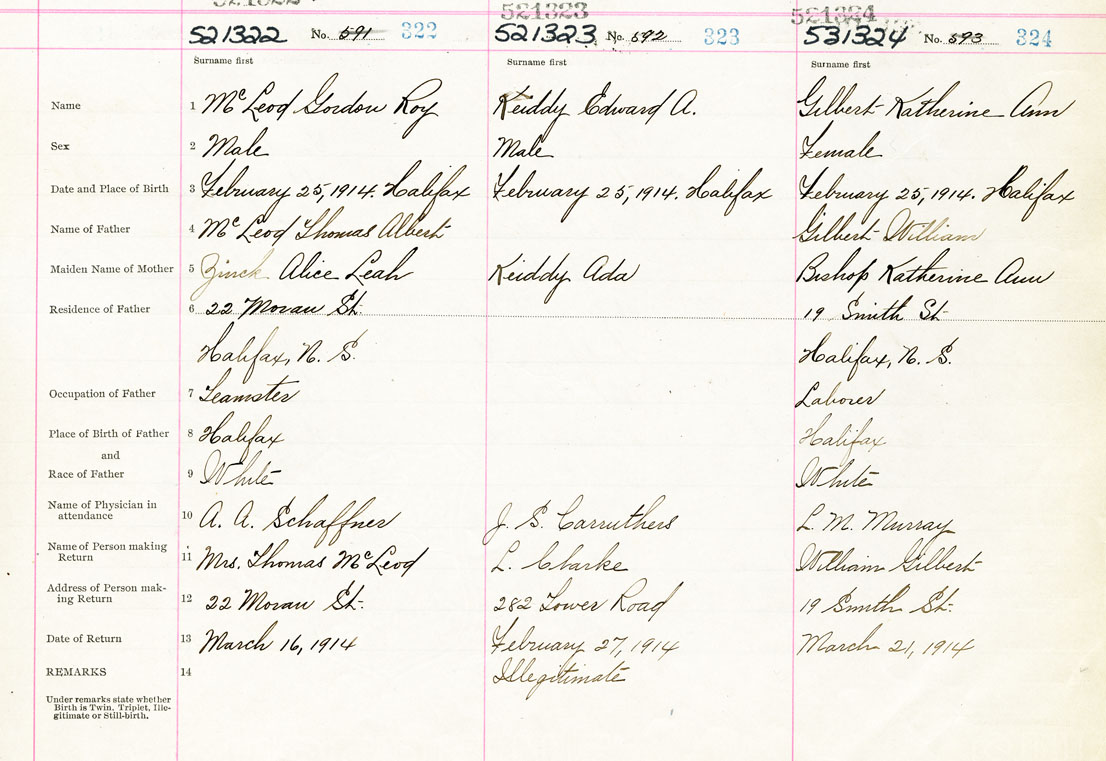 521323 521324
521322 No. 591 322 521323 No. 592 323 531324 No. 593 324
Surname first Surname first Surname first
Name 1 McLeod Gordon Roy Keiddy Edward A. Gilbert Katherine Ann
Sex 2 Male Male Female
Date and Place of Birth 3 February 25, 1914. Halifax February 25, 1914. Halifax February 25, 1914. Halifax
Name of Father 4 McLeod Thomas Albert Gilbert William
Maiden Name of Mother 5 Zinck Alice Leah Keiddy Ada Bishop Katherine Ann
Residence of Father 6 22 Moran St. 19 Smith St.
Halifax, N. S. Halifax, N. S.
Occupation of Father 7 Teamster Laborer
Place of Birth of Father 8 Halifax Halifax
and
Race of Father 9 White White
Name of Physician in
attendance 10 A. A. Schaffner J. S. Carruthers L. M. Murray
Name of Person making
Return 11 Mrs. Thomas McLeod L. Clarke William Gilbert
Address of Person mak-
ing Return 12 22 Moran St. 282 Tower Road 19 Smith St.
Date of Return 13 March 16, 1914 February 27, 1914 March 21, 1914
REMARKS 14 Illegitimate
Under remarks state whether
Birth is Twin, Triplet, Ille-
gitimate or Still-birth.